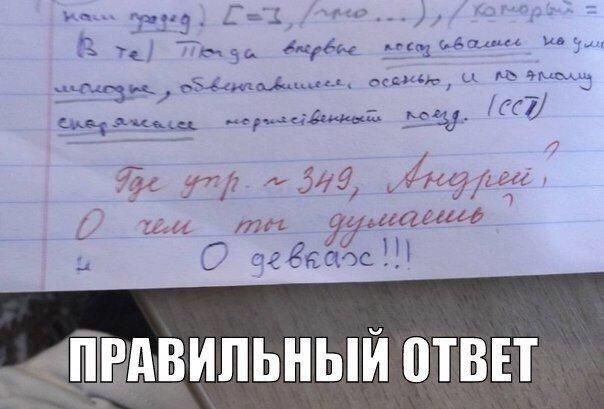 наш прадед). [=], (что...), (который =
(В те) Тогда впервые показывались на ули
молодые, обвенчавшиеся осенью, и по этому
снаряжался торжественный поезд. (ССП)
Где упр. ~ 349, Андрей?
О чем ты думаешь?
О девках!!!
ПРАВИЛЬНЫЙ ОТВЕТ